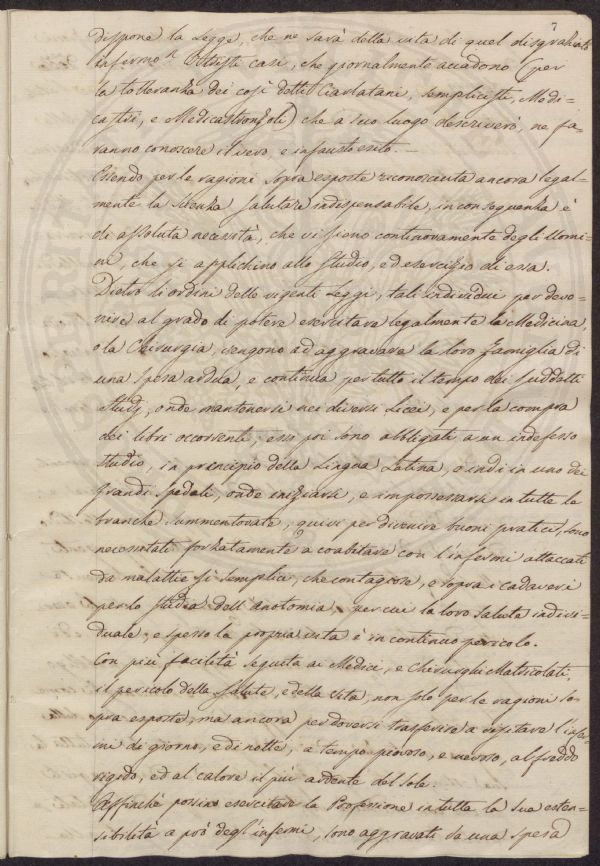 7
dispone la Legge, che ne sarà della vita di quel disgraziato
infermo? Questi casi, che giornalmente accadono (per
la tolleranza dei così detti Ciarlatani, sempliciste, Medi-
castri, e Medicastronzoli) che a suo luogo descriverò, ne fa-
ranno conoscere il vero, e infausto esito.
Essendo per le ragioni sopra esposte riconosciuta ancora legal-
mente la scienza salutare indispensabile, in conseguenza è
di assoluta necessità, che vi siene continovamente degli Uomi-
ni, che si applichino allo Studio, ed esercizio di essa.
Dietro di ordini delle vigenti Leggi, tali individui per deve-
nire al grado di potere esercitare legalmente la Medicina,
o la Chirurgia, vengono ad aggravare la loro Famiglia di
una Spesa ardua, e continua per tutto il tempo dei suddetti
Studj, onde mantenersi nei diversi Licei, e per la compra
dei libri occorrenti; essi poi sono obbligati a un indefesso
studio, in principio della Lingua Latina, e indi in uno dei
Grandi Spedali, onde iniziarsi, e impossessarsi in tutte le
branche summentovate; quivi per divenire buoni pratici, sono
necessitati forzatamente a coabitare con l'infermi attaccati
da malattie sì semplici, che contagiose, e sopra i cadaveri
per lo Studio dell'anotomia, per cui la loro salute indivi-
duale, e spesso la propria vita è in continuo pericolo.
Con più facilità seguita ai Medici, e Chirurghi Matricolati,
il pericolo della Salute, e della Vita, non solo per le ragioni so-
pra esposte, ma ancora per doversi trasferire a visitare l'infer-
mi di giorno, e di notte, a tempo piovoso, e nevoso, al freddo
rigido, ed al calore il più ardente del sole.
Affinchè possino esercitare la Professione in tutta la sua esten-
sibilità a prò degl'infermi, sono aggravati da una spesa